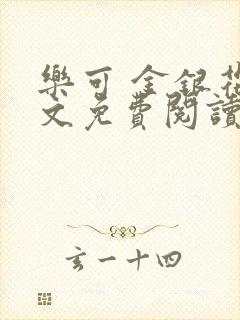 樂可 金銀花
文免費閱讀
玄一十四